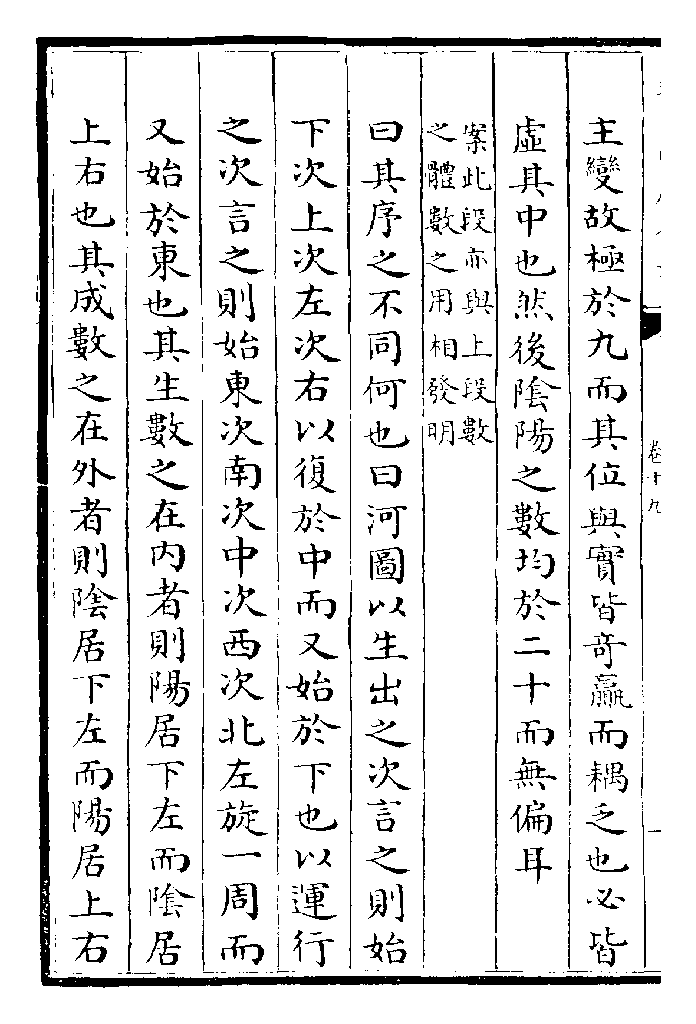 主變故極於九而其位與實皆奇贏而耦乏也必皆
虛其中也然後陰陽之數均於二十而無偏耳
案此段亦與上段數
之體數之用相發明
曰其序之不同何也曰河圖以生出之次言之則始
下次上次左次右以復於中而又始於下也以運行
之次言之則始東次南次中次西次北左旋一周而
又始於東也其生數之在内者則陽居下左而陰居
上右也其成數之在外者則陰居下左而陽居上右
卷十九